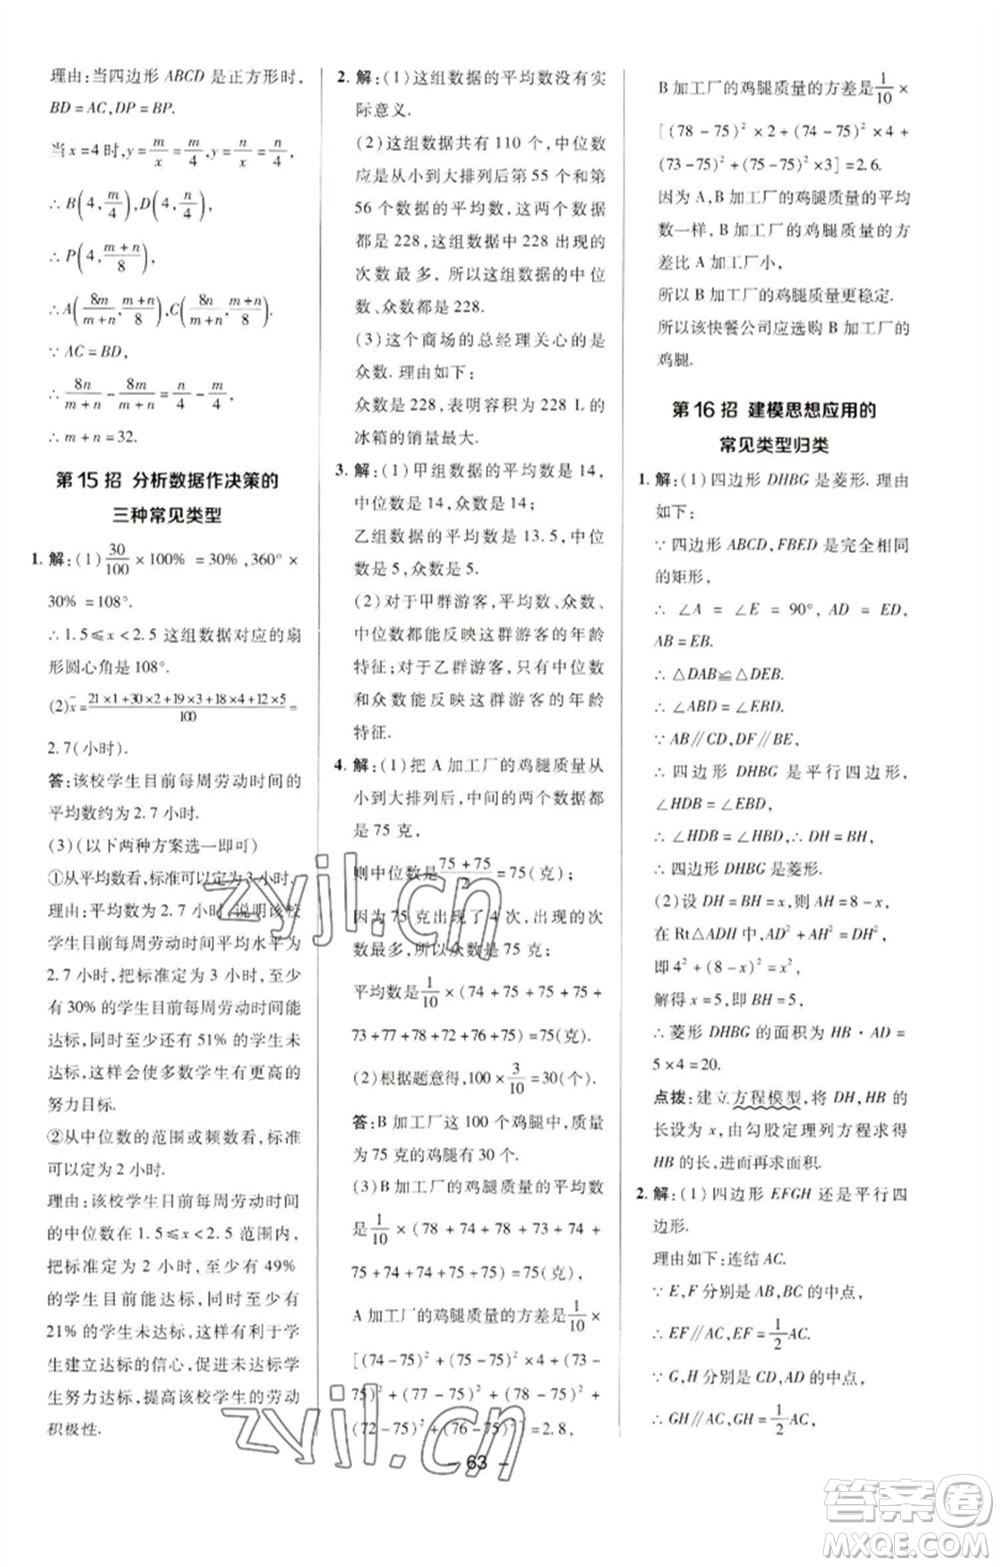 理由:当四边形 ABCD 是正方形时,
BD = AC, DP = BP.
当 x = 4 时, y = m/x = m/4, y = n/x = n/4,
∴ B(4, m/4), D(4, n/4),
∴ P(4, (m+n)/8),
∴ A(8m/(m+n), (m+n)/8), C(8n/(m+n), (m+n)/8).
∵ AC = BD,
∴ 8n/(m+n) − 8m/(m+n) = n/4 − m/4,
∴ m + n = 32.
第 15 招 分析数据作决策的
三种常见类型
1. 解:(1) 30/100 × 100% = 30%, 360° ×
30% = 108°.
∴ 1.5 ≤ x < 2.5 这组数据对应的扇
形圆心角是 108°.
(2) x̄ = (21×1+30×2+19×3+18×4+12×5)/100 =
2.7(小时).
答:该校学生目前每周劳动时间的
平均数约为 2.7 小时.
(3)(以下两种方案选一即可)
①从平均数看,标准可以定为 3 小时.
理由:平均数为 2.7 小时,说明该校
学生目前每周劳动时间平均水平为
2.7 小时,把标准定为 3 小时,至少
有 30% 的学生目前每周劳动时间能
达标,同时至少还有 51% 的学生未
达标,这样会使多数学生有更高的
努力目标.
②从中位数的范围或频数看,标准
可以定为 2 小时.
理由:该校学生目前每周劳动时间
的中位数在 1.5 ≤ x < 2.5 范围内,
把标准定为 2 小时,至少有 49% 的
学生目前能达标,同时至少还有
21% 的学生未达标,这样有利于学
生建立达标的信心,促进未达标学
生努力达标,提高该校学生的劳动
积极性.
2. 解:(1)这组数据的平均数没有实
际意义.
(2)这组数据共有 110 个,中位数
应是从小到大排列后第 55 个和第
56 个数据的平均数,这两个数据
都是 228,这组数据中 228 出现的
次数最多. 所以这组数据的中位
数、众数都是 228.
(3)这个商场的总经理关心的是
众数. 理由如下:
众数是 228,表明容积为 228 L 的
冰箱的销量最大.
3. 解:(1)甲组数据的平均数是 14,
中位数是 14,众数是 14;
乙组数据的平均数是 13.5,中位
数是 5,众数是 5.
(2)对于甲群游客,平均数、众数、
中位数都能反映这群游客的年龄
特征;对于乙群游客,只有中位数
和众数能反映这群游客的年龄
特征.
4. 解:(1)把 A 加工厂的鸡腿质量从
小到大排列后,中间的两个数据都
是 75 克,
则中位数是 (75+75)/2 = 75(克).
因为 75 克出现了 4 次,出现的次
数最多,所以众数是 75 克.
平均数是 1/10 × (74 + 75 + 75 + 75 +
73 + 77 + 78 + 72 + 76 + 75) = 75(克).
(2)根据题意得, 100 × 3/10 = 30(个).
答:B 加工厂的 100 个鸡腿中,质量
为 75 克的鸡腿有 30 个.
(3)B 加工厂的鸡腿质量的平均数
是 1/10 × (78 + 74 + 78 + 73 + 74 +
75 + 74 + 74 + 75 + 75) = 75(克),
A 加工厂的鸡腿质量的方差是 1/10 ×
[(74−75)² + (75−75)² × 4 + (73 −
75)² + (77 − 75)² + (78 − 75)² +
(72 − 75)² + (76 − 75)²] = 2.8,
B 加工厂的鸡腿质量的方差是 1/10 ×
[(78 − 75)² × 2 + (74 − 75)² × 4 +
(73−75)² + (75−75)² × 3] = 2.6.
因为 A,B 加工厂的鸡腿质量的平均
数一样,B 加工厂的鸡腿质量的方
差比 A 加工厂小,
所以 B 加工厂的鸡腿质量更稳定.
所以该快餐公司应选购 B 加工厂的
鸡腿.
第 16 招 建模思想应用的
常见类型归类
1. 解:(1)四边形 DHBG 是菱形. 理由
如下:
∵ 四边形 ABCD, FBED 是完全相同
的矩形,
∴ ∠A = ∠E = 90°, AD = ED,
AB = EB.
∴ △DAB ≌ △DEB.
∴ ∠ABD = ∠EBD.
∵ AB∥CD, DF∥BE,
∴ 四边形 DHBG 是平行四边形,
∠HDB = ∠EBD.
∴ ∠HDB = ∠HBD, ∴ DH = BH,
∴ 四边形 DHBG 是菱形.
(2)设 DH = BH = x, 则 AH = 8 − x,
在 Rt△ADH 中, AD² + AH² = DH²,
即 4² + (8 − x)² = x²,
解得 x = 5, 即 BH = 5,
∴ 菱形 DHBG 的面积为 HB · AD =
5 × 4 = 20.
点拨:建立方程模型,将 DH, HB 的
长设为 x,由勾股定理列方程求得
HB 的长,进而再求面积.
2. 解:(1)四边形 EFGH 还是平行四
边形.
理由如下:连结 AC.
∵ E, F 分别是 AB, BC 的中点,
∴ EF∥AC, EF = 1/2 AC.
∵ G, H 分别是 CD, AD 的中点,
∴ GH∥AC, GH = 1/2 AC,
- 63 -
zyjl.cn
zyjl.cn
答案圈
MXQE.COM